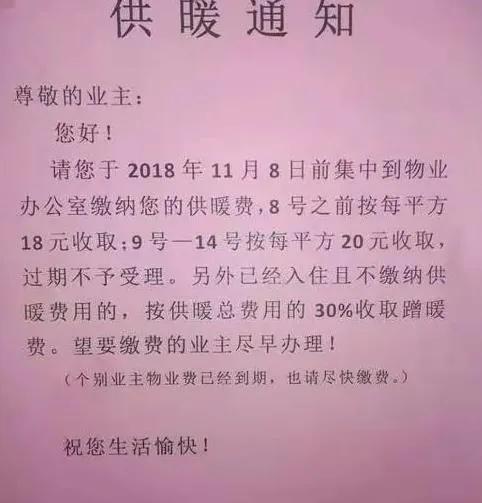 供暖通知
尊敬的业主：
您好！
请您于 2018 年 11 月 8 日前集中到物业
办公室缴纳您的供暖费，8 号之前按每平方
18 元收取；9 号—14 号按每平方 20 元收取，
过期不予受理。另外已经入住且不缴纳供
暖费用的，按供暖总费用的 30%收取蹭暖
费。望要缴费的业主尽早办理！
（个别业主物业费已经到期，也请尽快缴费。）
祝您生活愉快！